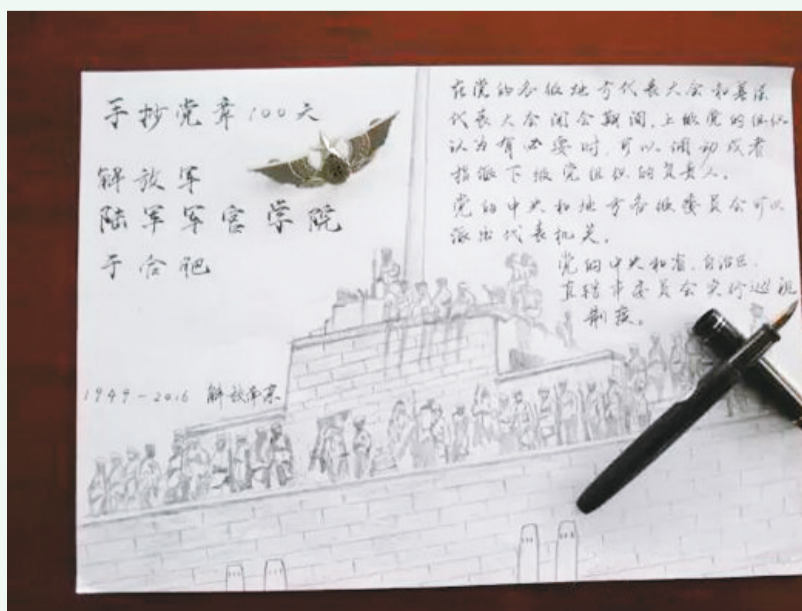 手抄党章100天
解放军
陆军军官学院
于合肥
1949-2016 解放南京
在党的各级地方代表大会和基层
代表大会闭会期间，上级党的组织
认为有必要时，可以调动或者
指派下级党组织的负责人。
党的中央和地方各级委员会可以
派出代表机关。
党的中央和省、自治区、
直辖市委员会实行巡视
制度。